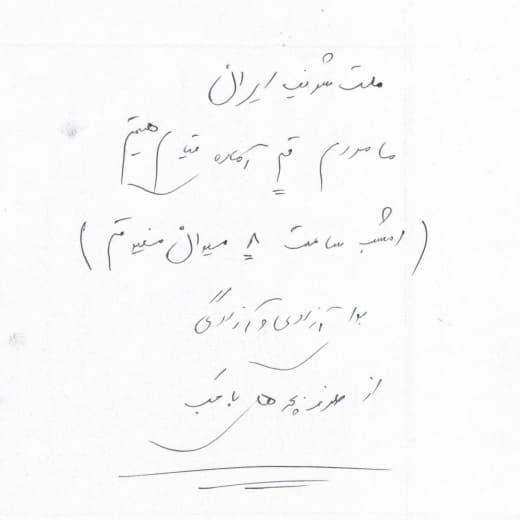 ملت شریف ایران
ما مردم قم آماده قیام هستیم
(امشب ساعت ۸ میدان صفیر قم)
برا آزادی و آزادگی
از طرف بچه های باجک